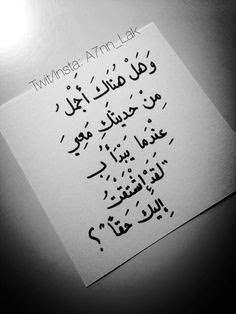 Twit/Insta: A7nn_Lak
وَهَلْ هُنَاكَ أَجْمَلُ
مِنْ حَديثِكِ مَعِيَ
عِنْدِما يَبْدَأُ بِ
"لَقَدْ إِشْتَقْتُ
إِلَيكَ حَقاً"؟